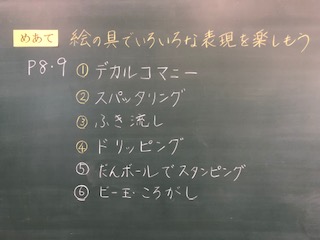 めあて 絵の具でいろいろな表現を楽しもう
P8.9
① デカルコマニー
② スパッタリング
③ ふき流し
④ ドリッピング
⑤ だんボールでスタンピング
⑥ ビー玉ころがし